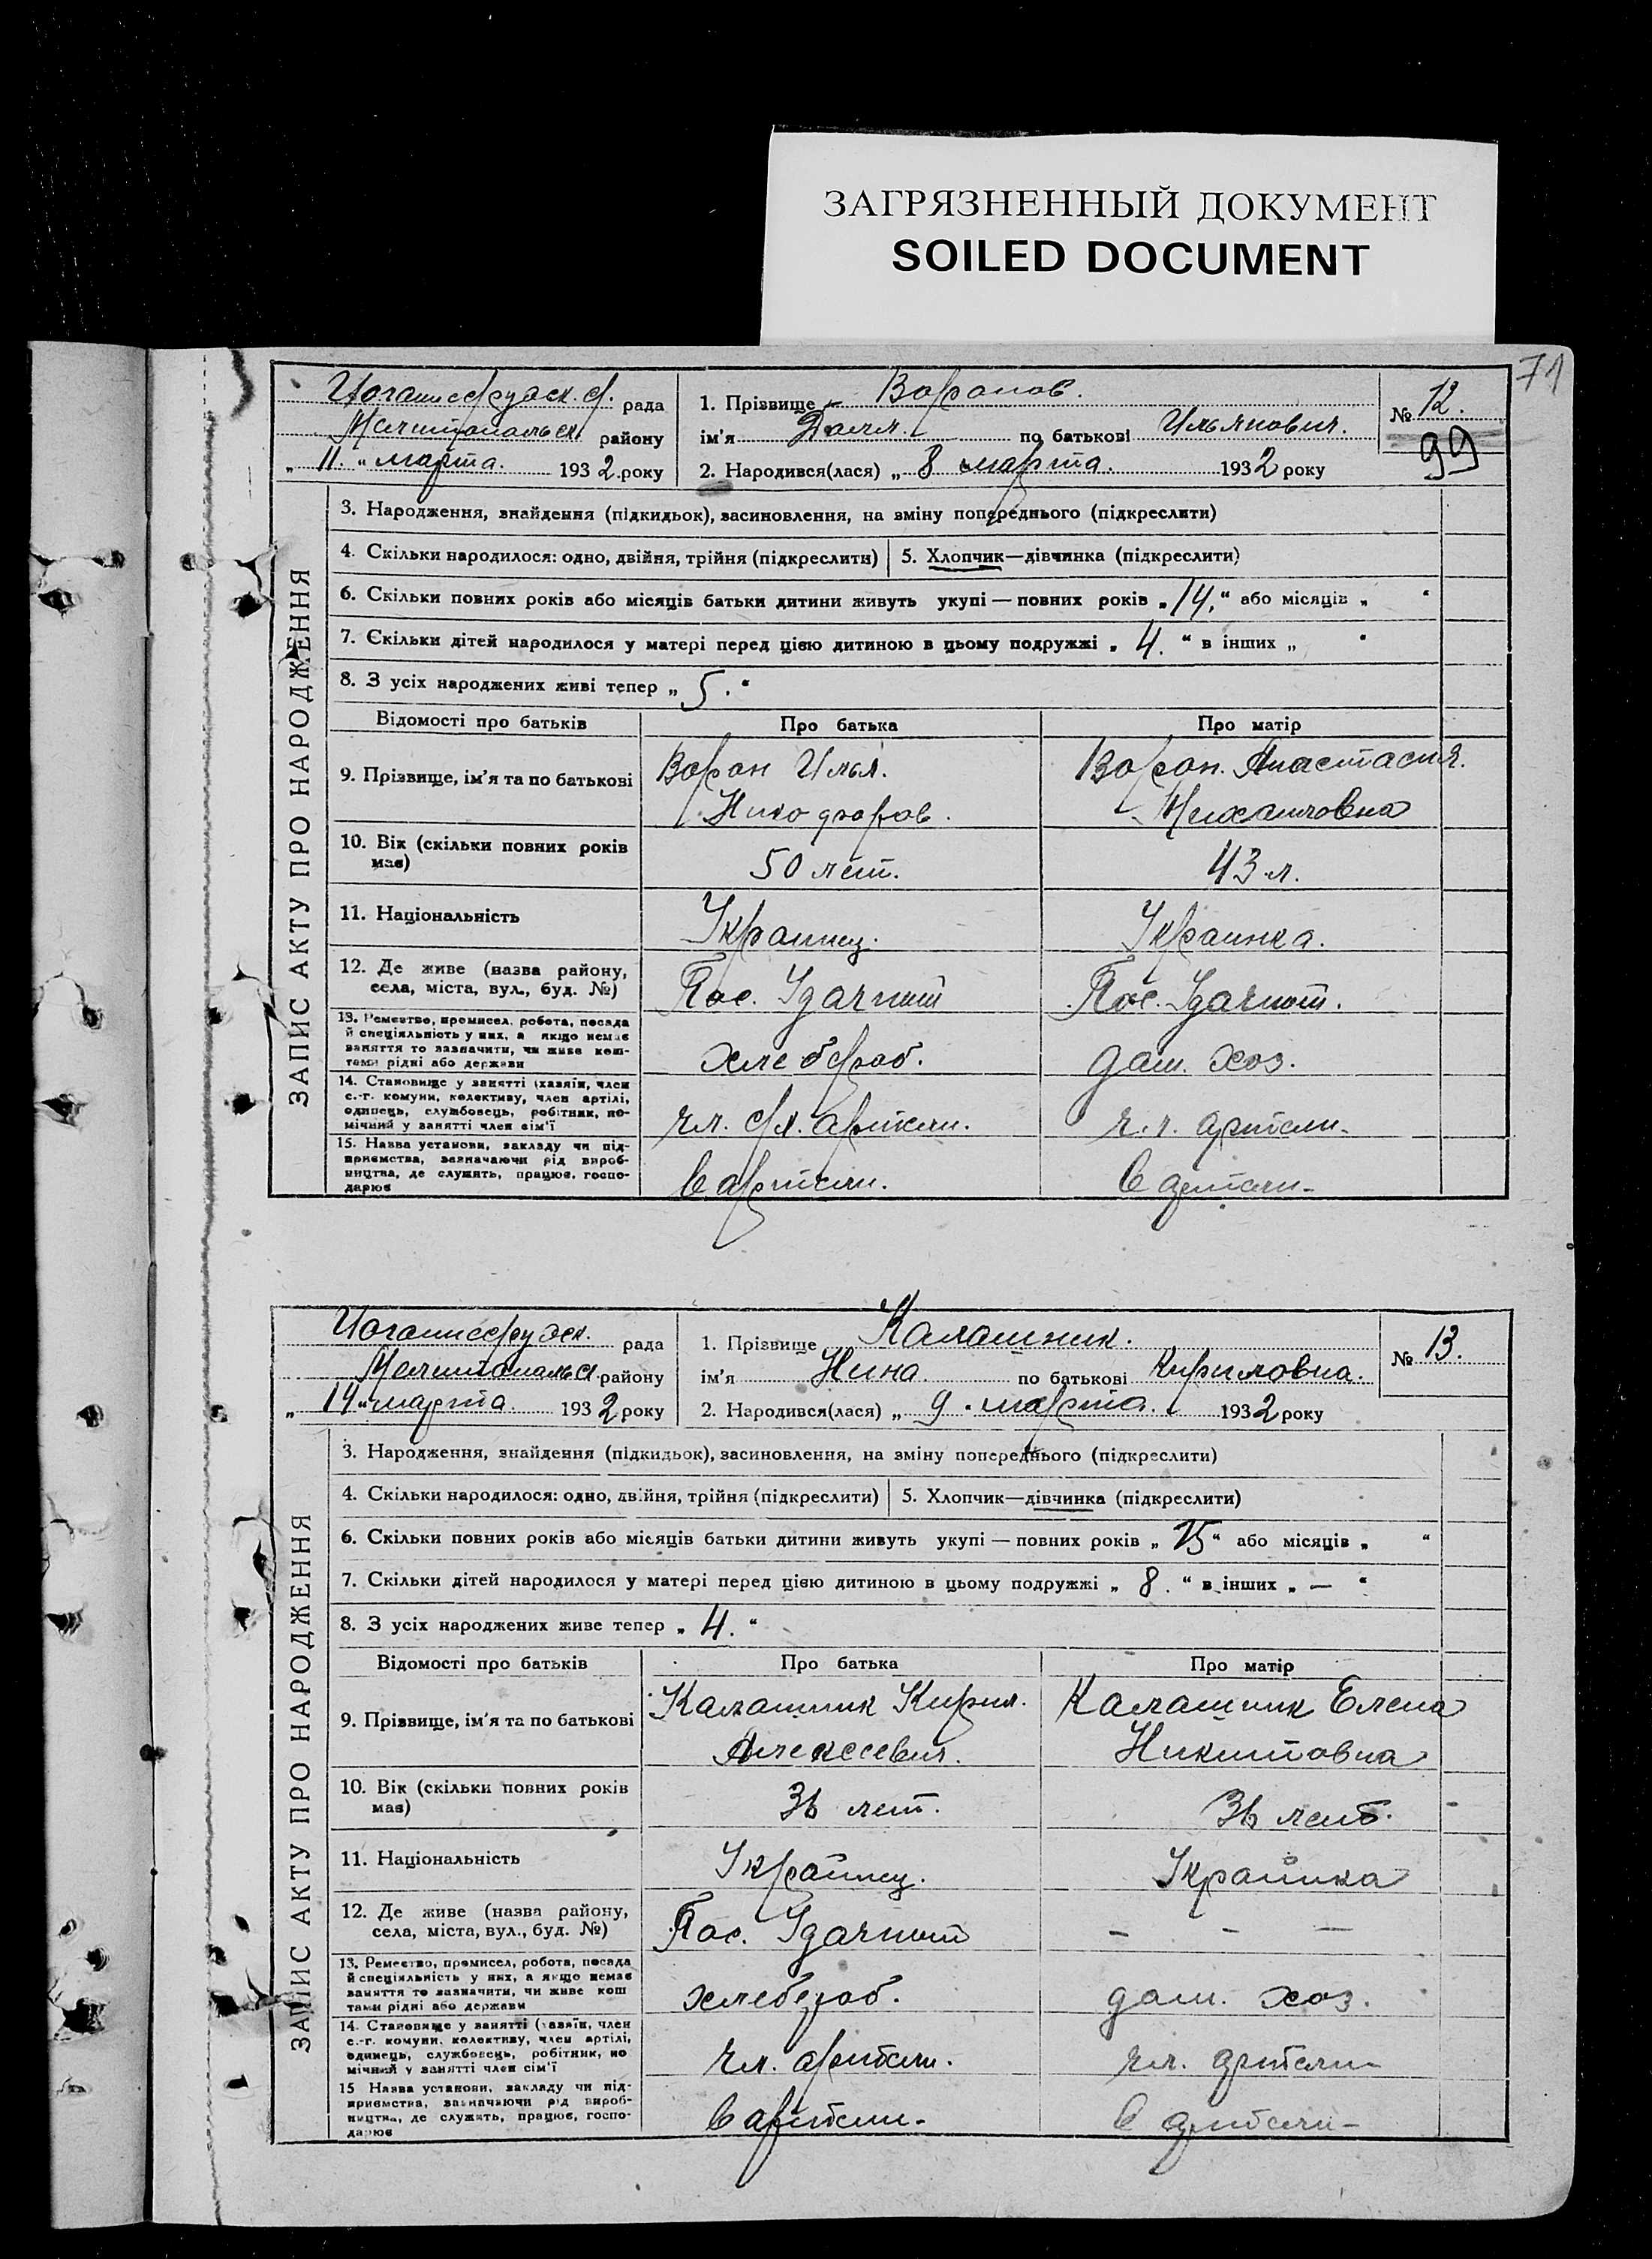 ЗАГРЯЗНЕННЫЙ ДОКУМЕНТ
SOILED DOCUMENT
71
рада
Мелитопольск. району
„ 11. “ марта. 1932 року
1. Прізвище Воронов.
ім'я по батькові Ильянович.
2. Народився(лася) „ 8 марта. 1932 року
№ 12.
99
ЗАПИС АКТУ ПРО НАРОДЖЕННЯ
3. Народження, знайдення (підкидьок), засиновлення, на зміну попереднього (підкреслити)
4. Скільки народилося: одно, двійня, трійня (підкреслити) 5. Хлопчик—дівчинка (підкреслити)
6. Скільки повних років або місяців батьки дитини живуть укупі — повних років „14.“ або місяців „ “
7. Скільки дітей народилося у матері перед цією дитиною в цьому подружжі „ 4. “ в інших „ “
8. З усіх народжених живі тепер „ 5. “
Відомості про батьків Про батька Про матір
9. Прізвище, ім'я та по батькові
Ворон Илья.
Никофоров.
Ворон. Анастасия.
Михаиловна
10. Вік (скільки повних років
має)
50 лет.
43 л.
11. Національність
Украинец.
Украинка.
12. Де живе (назва району,
села, міста, вул., буд. №)
Пос. Удачный
Пос. Удачный.
13. Ремество, промисел, робота, посада
й спеціяльність у них, а якщо немає
заняття то зазначити, чи живе кош-
тами рідні або держави
хлебороб.
дом. хоз.
14. Становище у занятті (хазяїн, член
с.-г. комуни, колективу, член артілі,
одинець, службовець, робітник, по-
мічний у занятті член сім'ї
чл. с/х. артели.
ч.л. артели.
15. Назва установи, закладу чи під-
приємства, зазначаючи рід вироб-
ництва, де служить, працює, госпо-
дарює
в артели.
в артели.
рада
Мелитопольск району
„ 14 “ марта. 1932 року
1. Прізвище Калашник.
ім'я Нина. по батькові Кириловна.
2. Народився(лася) „ 9. марта. 1932 року
№ 13.
ЗАПИС АКТУ ПРО НАРОДЖЕННЯ
3. Народження, знайдення (підкидьок), засиновлення, на зміну попереднього (підкреслити)
4. Скільки народилося: одно, двійня, трійня (підкреслити) 5. Хлопчик—дівчинка (підкреслити)
6. Скільки повних років або місяців батьки дитини живуть укупі — повних років „ 15 “ або місяців „ “
7. Скільки дітей народилося у матері перед цією дитиною в цьому подружжі „ 8. “ в інших „ — “
8. З усіх народжених живе тепер „ 4. “
Відомості про батьків Про батька Про матір
9. Прізвище, ім'я та по батькові
Калашник Кирил.
Алексеевич.
Калашник Елена
Никитовна
10. Вік (скільки повних років
має)
36 лет.
36 лет.
11. Національність
Украинец.
Украинка
12. Де живе (назва району,
села, міста, вул., буд. №)
Пос. Удачный
— — —
13. Ремество, промисел, робота, посада
й спеціяльність у них, а якщо немає
заняття то зазначити, чи живе кош
тами рідні або держави
хлебороб.
дом. хоз.
14. Становище у занятті (хазяїн, член
с.-г. комуни, колективу, член артілі,
одинець, службовець, робітник, по
мічний у занятті член сім'ї
чл. артели.
чл. артели
15 Назва установи, закладу чи під-
приємства, зазначаючи рід вироб-
ництва, де служить, працює, госпо-
дарює
в артели.
в артели